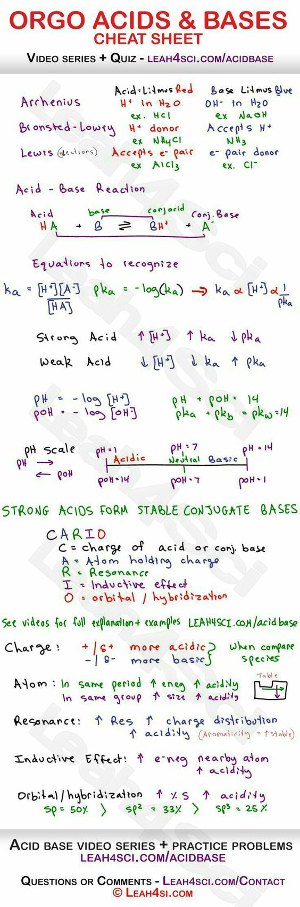 ORGO ACIDS & BASES
CHEAT SHEET
VIDEO SERIES + QUIZ - LEAH4SCI.COM/ACIDBASE
Acid=Litmus Red Base Litmus Blue
Arrhenius H⁺ in H₂O OH⁻ in H₂O
ex. HCl ex NaOH
Bronsted-Lowry H⁺ donor Accepts H⁺
ex NH₄Cl NH₃
Lewis (electrons) Accepts e⁻ pair e⁻ pair donor
ex AlCl₃ ex. Cl⁻
Acid - Base Reaction
Acid base conj acid Conj. Base
HA + B ⇌ BH⁺ + A⁻
Equations to recognize
ka = [H⁺][A⁻]/[HA] pka = -log(ka) → ka α [H⁺] α 1/pka
Strong Acid ↑[H⁺] ↑ka ↓pka
Weak Acid ↓[H⁺] ↓ka ↑pka
pH = -log [H⁺] pH + pOH = 14
pOH = -log [OH] pka + pkb = pkw=14
pH scale pH=1 pH=7 pH=14
pH → Acidic Neutral Basic
← pOH pOH=14 pOH=7 pOH=1
STRONG ACIDS FORM STABLE CONJUGATE BASES
CARIO
C = charge of acid or conj. base
A = Atom holding charge
R = Resonance
I = Inductive effect
O = orbital / hybridization
See videos for full explanation + examples LEAH4SCI.COM/acidbase
Charge: +/δ+ more acidic } when compare
-/δ- more basic } species
Atom: In same period ↑ eneg ↑ acidity Table
In same group ↑ size ↑ acidity
Resonance: ↑ Res ↑ charge distribution
↑ acidity (Aromaticity = ↑stable)
Inductive Effect: ↑ e-neg nearby atom
↑ acidity
Orbital/hybridization ↑ %S ↑ acidity
sp = 50% > sp² = 33% > sp³ = 25%
ACID BASE VIDEO SERIES + PRACTICE PROBLEMS
LEAH4SCI.COM/ACIDBASE
QUESTIONS OR COMMENTS - LEAH4SCI.COM/CONTACT
© LEAH4SCI.COM
Leah4sci